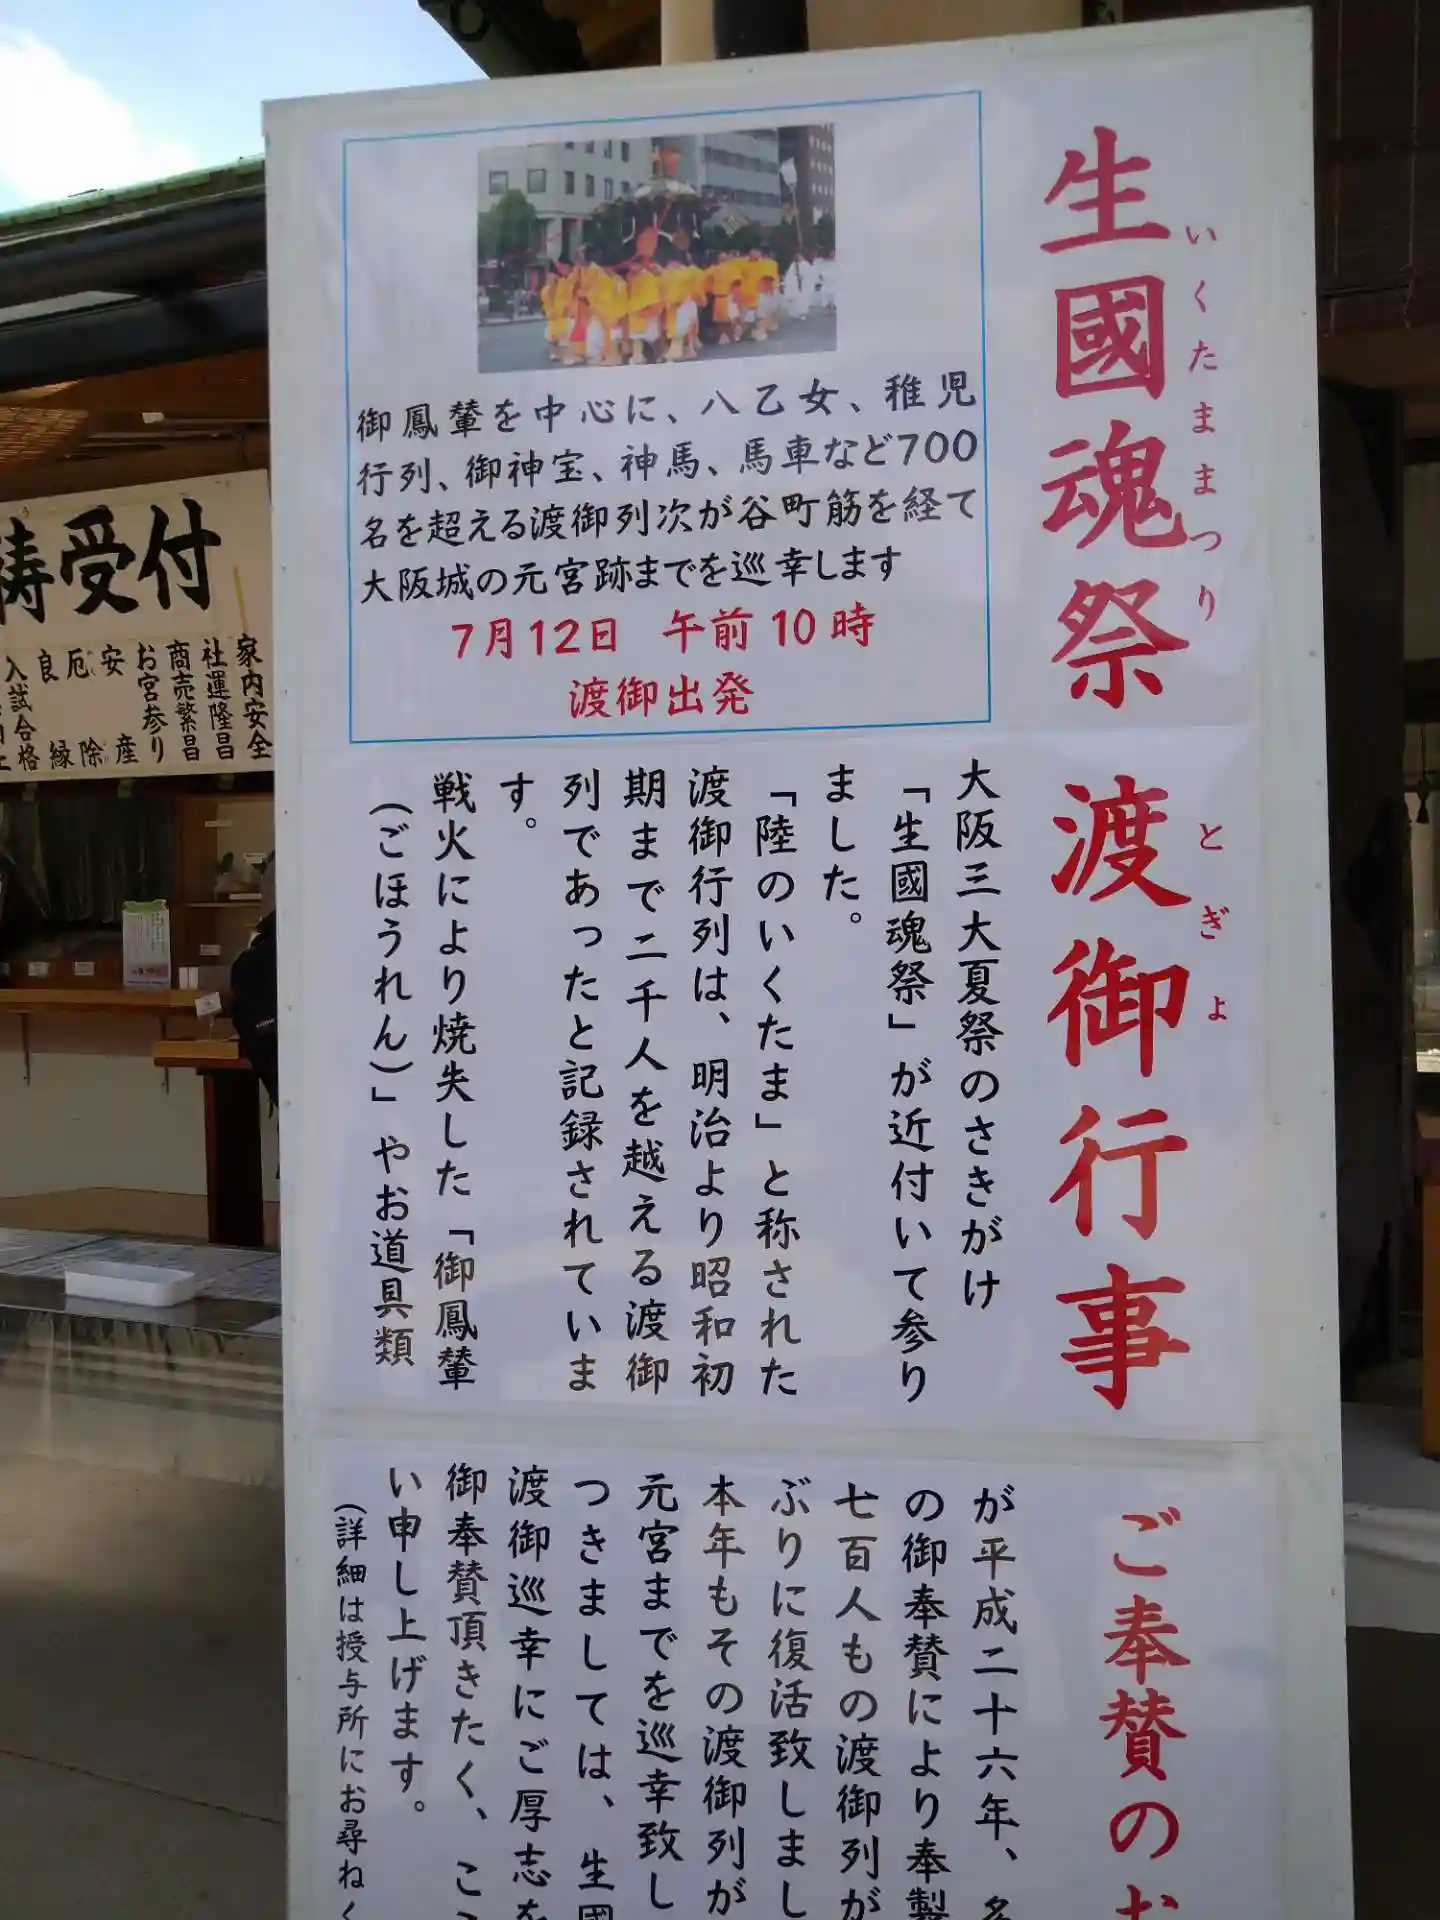 生國魂祭 渡御行事
いくたままつり
とぎょ
御鳳輦を中心に、八乙女、稚児
行列、御神宝、神馬、馬車など700
名を超える渡御列次が谷町筋を経て
大阪城の元宮跡までを巡幸します
7月12日 午前10時
渡御出発
大阪三大夏祭のさきがけ
「生國魂祭」が近付いて参り
ました。
「陸のいくたま」と称された
渡御行列は、明治より昭和初
期まで二千人を越える渡御
列であったと記録されていま
す。
戦火により焼失した「御鳳輦
(ごほうれん)」やお道具類
ご奉賛のお
が平成二十六年、
の御奉賛により奉製
七百人もの渡御列が
ぶりに復活致しまし
本年もその渡御列が
元宮までを巡幸致し
つきましては、生國
渡御巡幸にご厚志を
御奉賛頂きたく、
い申し上げます。
(詳細は授与所にお尋ねく
祷受付
家内安全
社運隆昌
商売繁昌
お宮参り
安産
厄除
良縁
入試合格